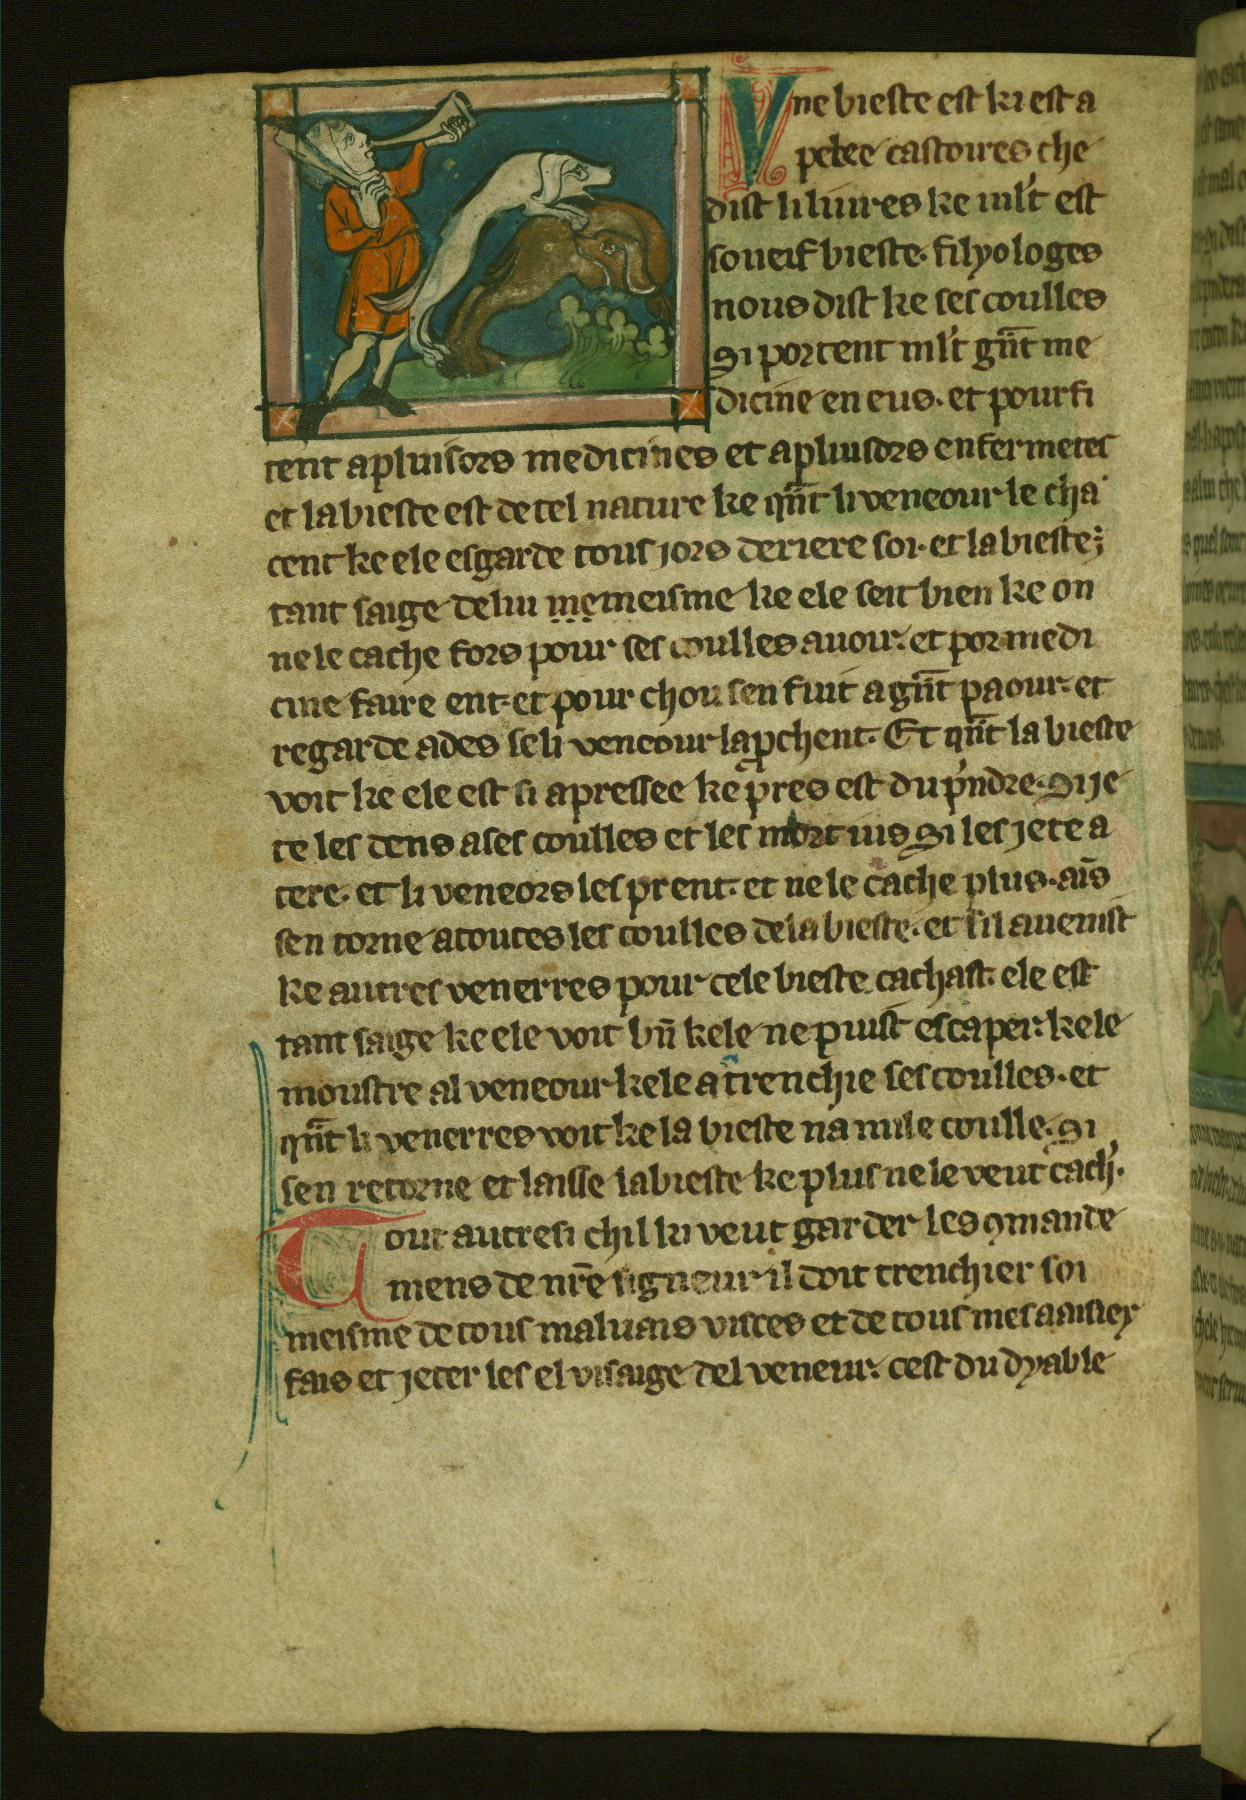 Vne bieste est ki est a
pelee castoires che
dist li liures ke ml't est
soueif bieste. filyologes
nous dist ke ses coulles
si portent ml't gñt me
dicine en eus. et pourfi
tent a pluisors medicines et a pluisors enfermetes
et la bieste est de tel nature ke qñt li veneour le cha
cent ke ele esgarde tous jors deriere soi. et la bieste ÷
tant saige de lui me meisme ke ele seit bien ke on
ne le cache fors pour ses coulles auoir. et por medi
cine faire ent. et pour chou sen fuit a gñt paour. et
regarde ades se li veneour lapchent. Et qñt la bieste
voit ke ele est si apressee ke pres est du p'ndre. si je
te les dens a ses coulles et les mort ius si les jete a
tere. et li veneors les prent. et ne le cache plus. ais̄
sen torne a toutes les coulles de la bieste. et sil auenist
ke autres venerres pour cele bieste cachast. ele est
tant saige ke ele voit bn̄ kele ne puist escaper. kele
moustre al veneour kele a trenchie ses coulles. et
qñt li venerres voit ke la bieste na mile coulle. si
sen retorne et laisse la bieste ke plus ne le veut cach'.
Tout autresi chil ki veut garder les ꝯmande
mens de nr̄e signeur il doit trenchier soi
meisme de tous maluais visces et de tous mesaaisiex
fais et jeter les el visaige del veneur. cest du dyable